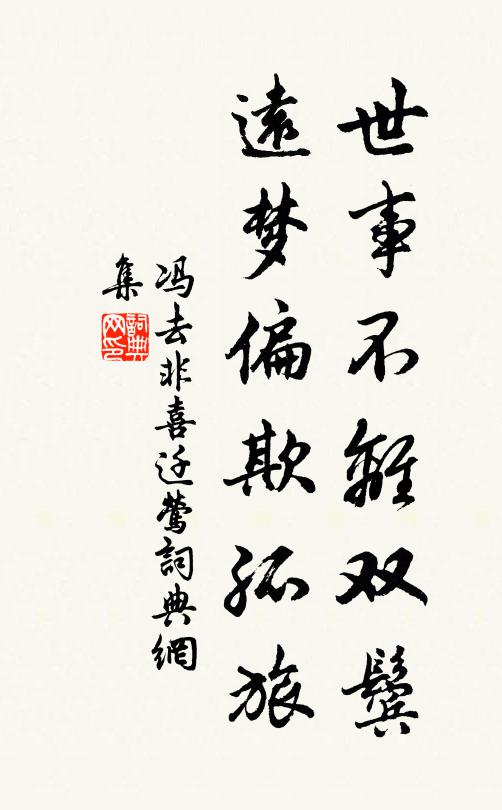 世事不離双鬓
遠梦偏欺孤旅
冯去非喜迁莺詞典網
集
詞典
网印